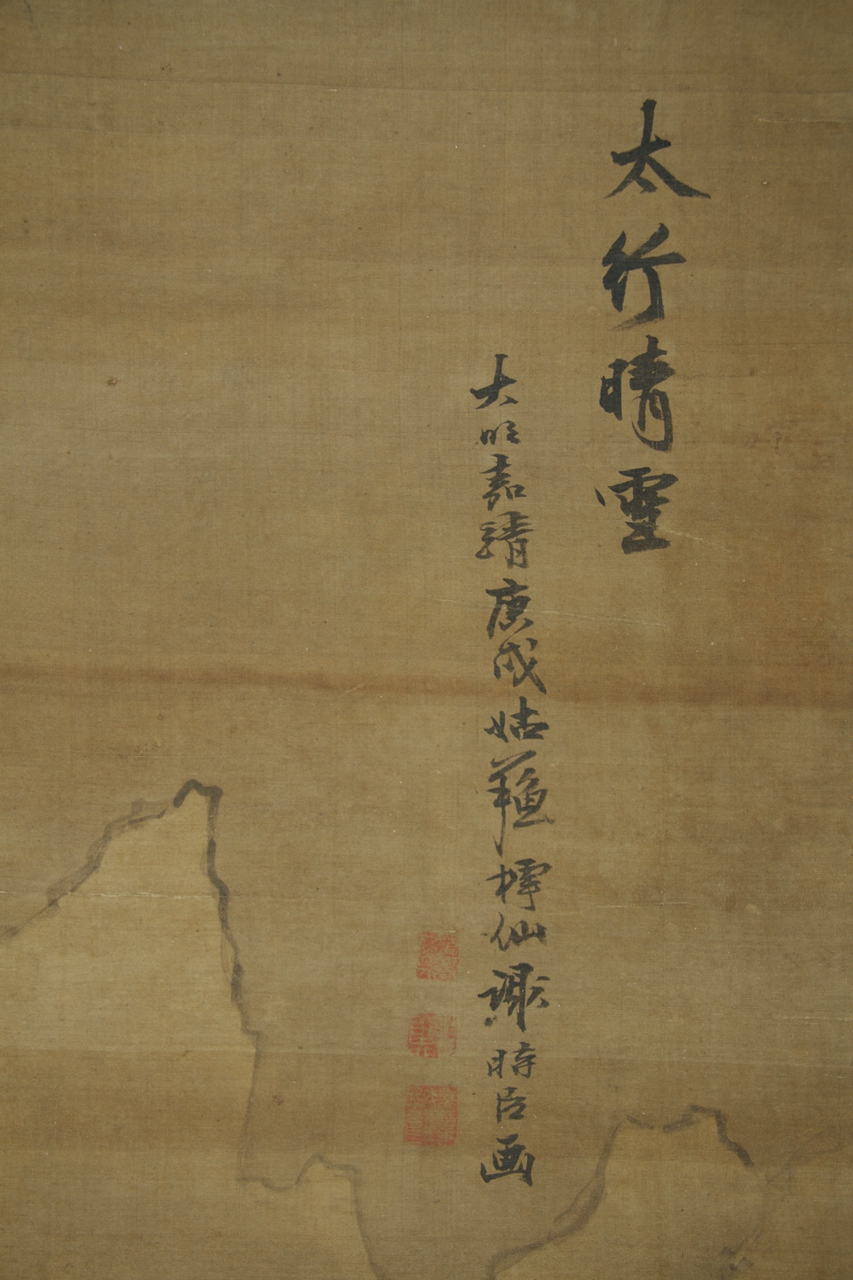 太行晴雪
大明嘉靖庚戌姑蘓樗仙謝時臣画